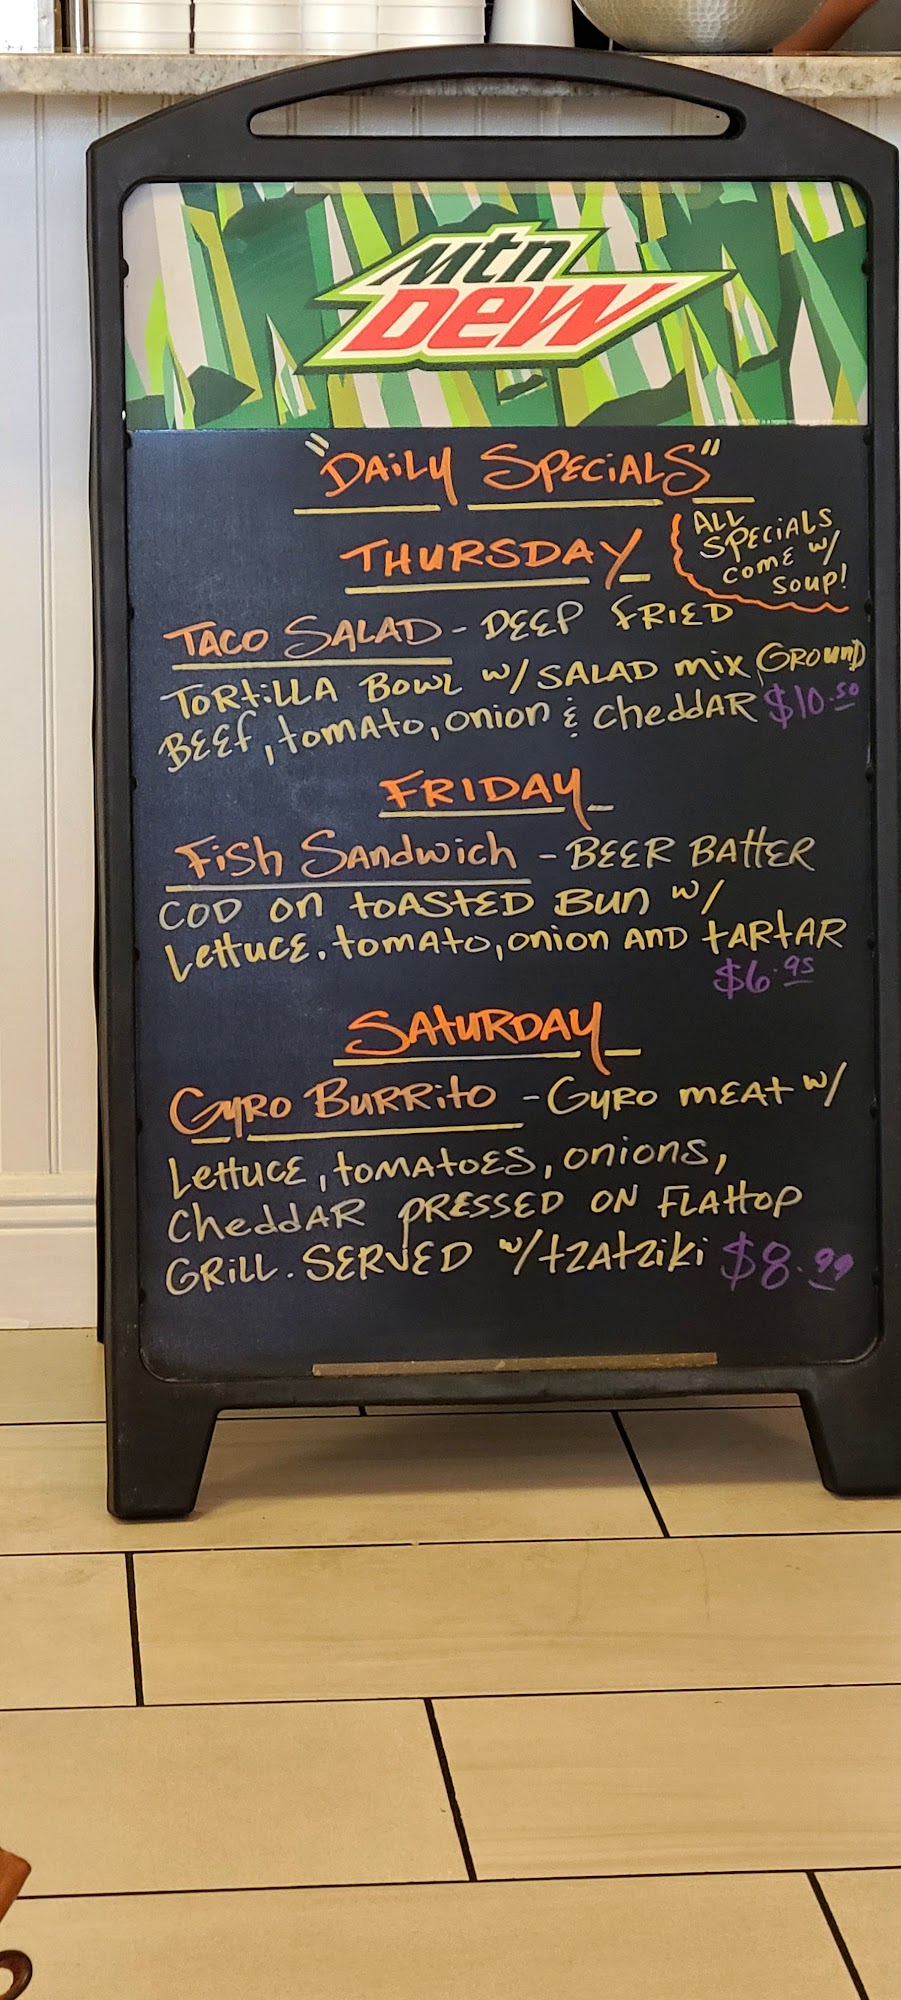 Mtn
Dew
"DAiLY SPECiALS"
THURSDAY
ALL
SPECiALS
COME w/
SOUP!
TACO SALAD - DEEP FRIED
TORtiLLA BOWL w/ SALAD mix, GROunD
BEEf, tomAto, onion & cheddAR $10.50
FRIDAY
Fish Sandwich - BEER BAttER
COD on toASTED Bun w/
LettucE. tomAto, onion AND tARtAR
$6.95
SAtURDAY
GyRO BuRRito - GYRO mEAt w/
LettucE, tomAtoES, onions,
CheddAR pRESSED ON FLAttop
GRiLL. SERVED w/ tzAtziki $8.99